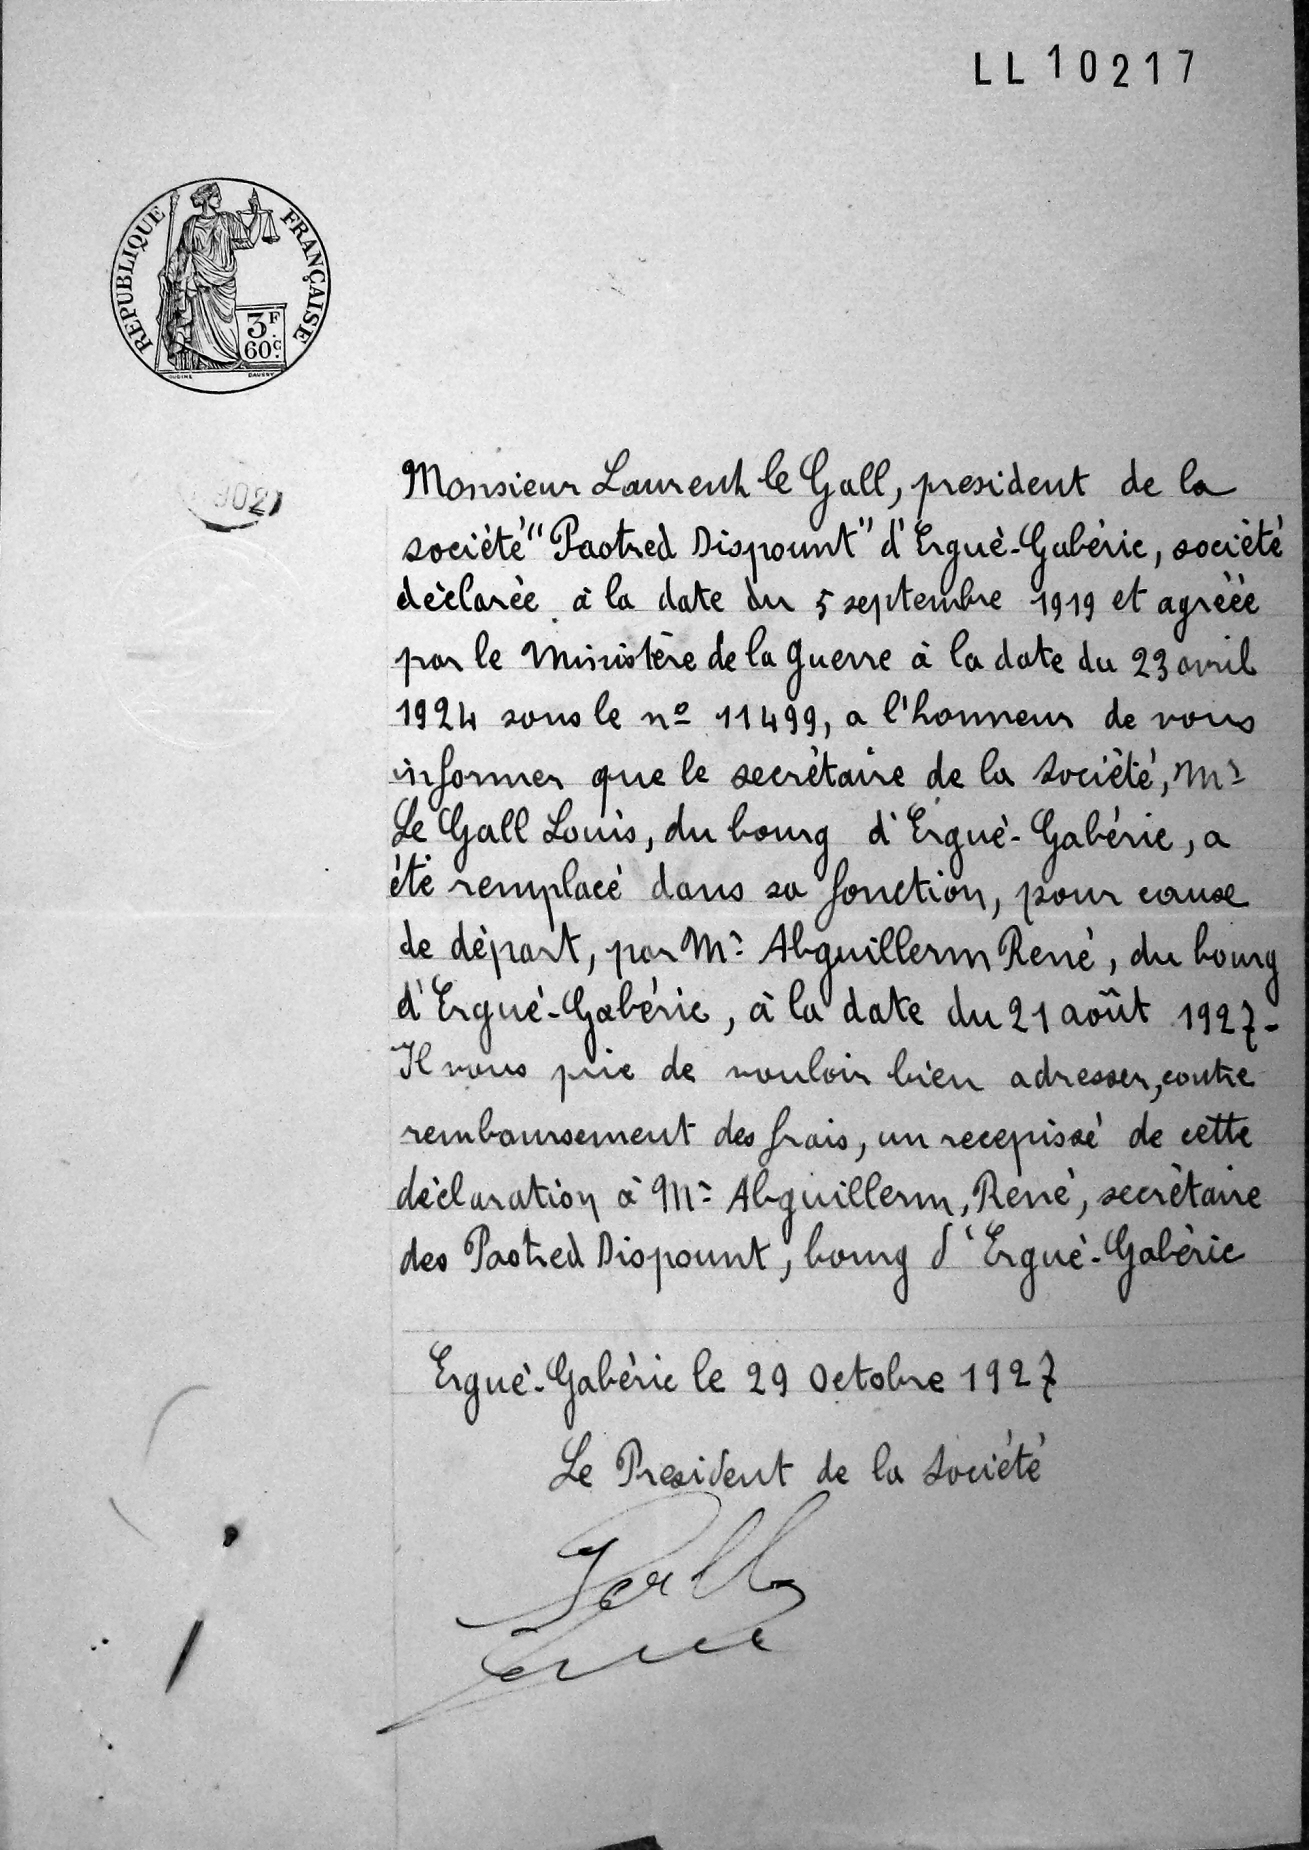 LL 10217
REPUBLIQUE FRANÇAISE
3F
60c
OUDINE
902
Monsieur Laurent le Gall, president de la
société "Paotred Dispount" d'Ergué-Gabéric, société
déclarée à la date du 5 septembre 1919 et agréée
par le Ministère de la guerre à la date du 23 avril
1924 sous le nº 11499, a l'honneur de vous
informer que le secrétaire de la Société, Mr
Le Gall Louis, du bourg d'Ergué-Gabéric, a
été remplacé dans sa fonction, pour cause
de départ, par Mr Abguillerm René, du bourg
d'Ergué-Gabéric, à la date du 21 août 1927-
Il vous prie de vouloir bien adresser, contre
remboursement des frais, un recepissé de cette
déclaration à Mr Abguillerm, René, secrétaire
des Paotred Dispount, bourg d'Ergué-Gabéric
Ergué-Gabéric le 29 Octobre 1927
Le President de la Société